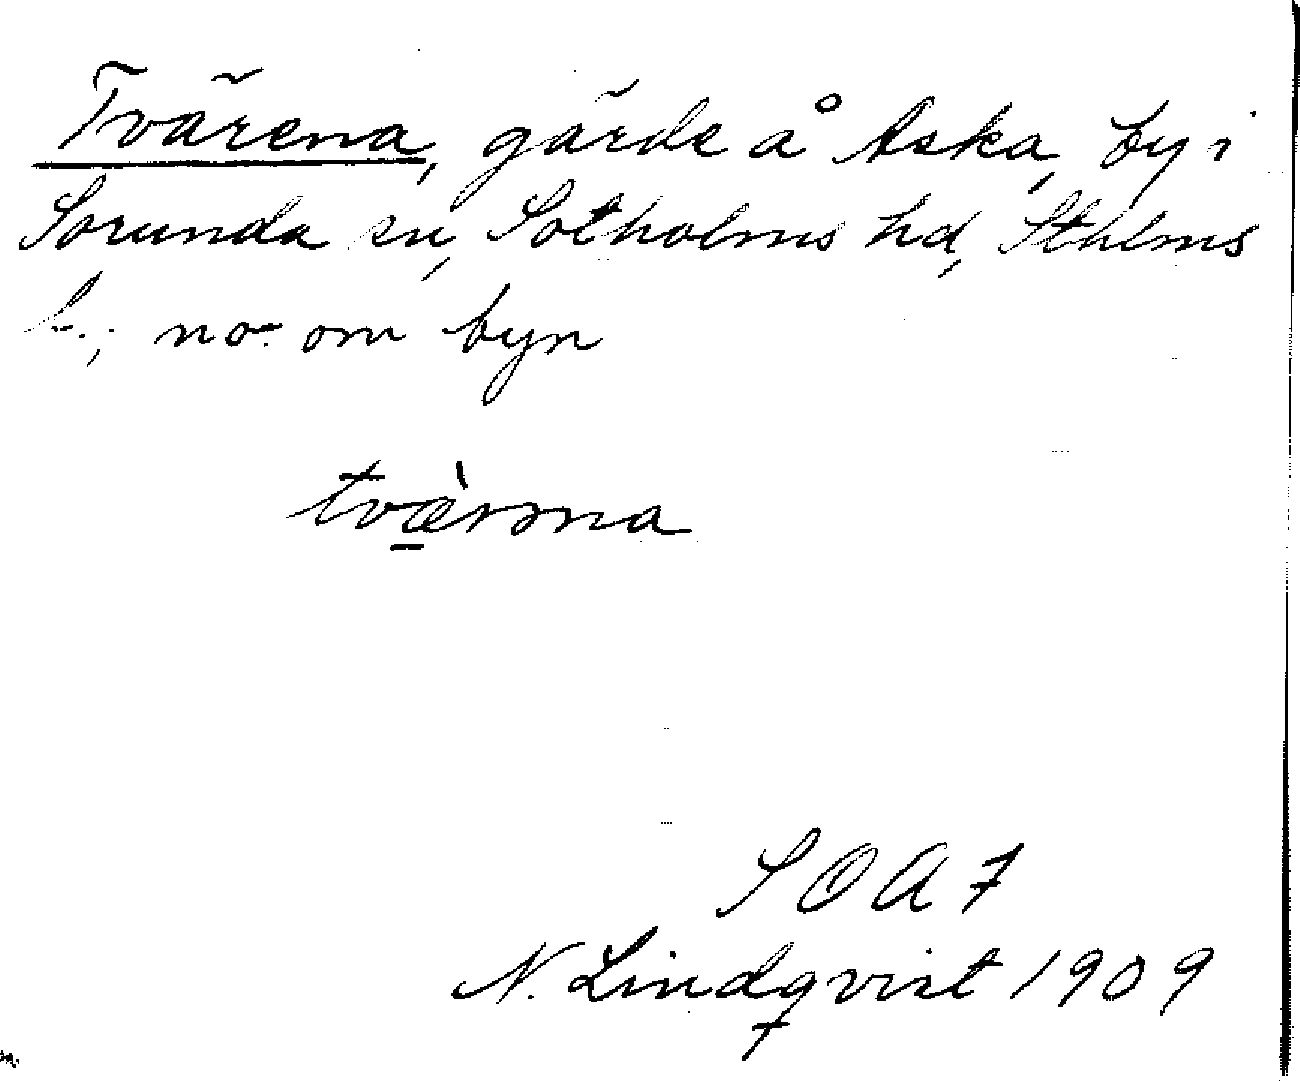 Tvärena, gärde å Aska, by i
Sorunda sn, Sotholms hd, Sthlms
l.; no. om byn
tvæ̀rəna
SOA 7
N. Lindqvist 1909